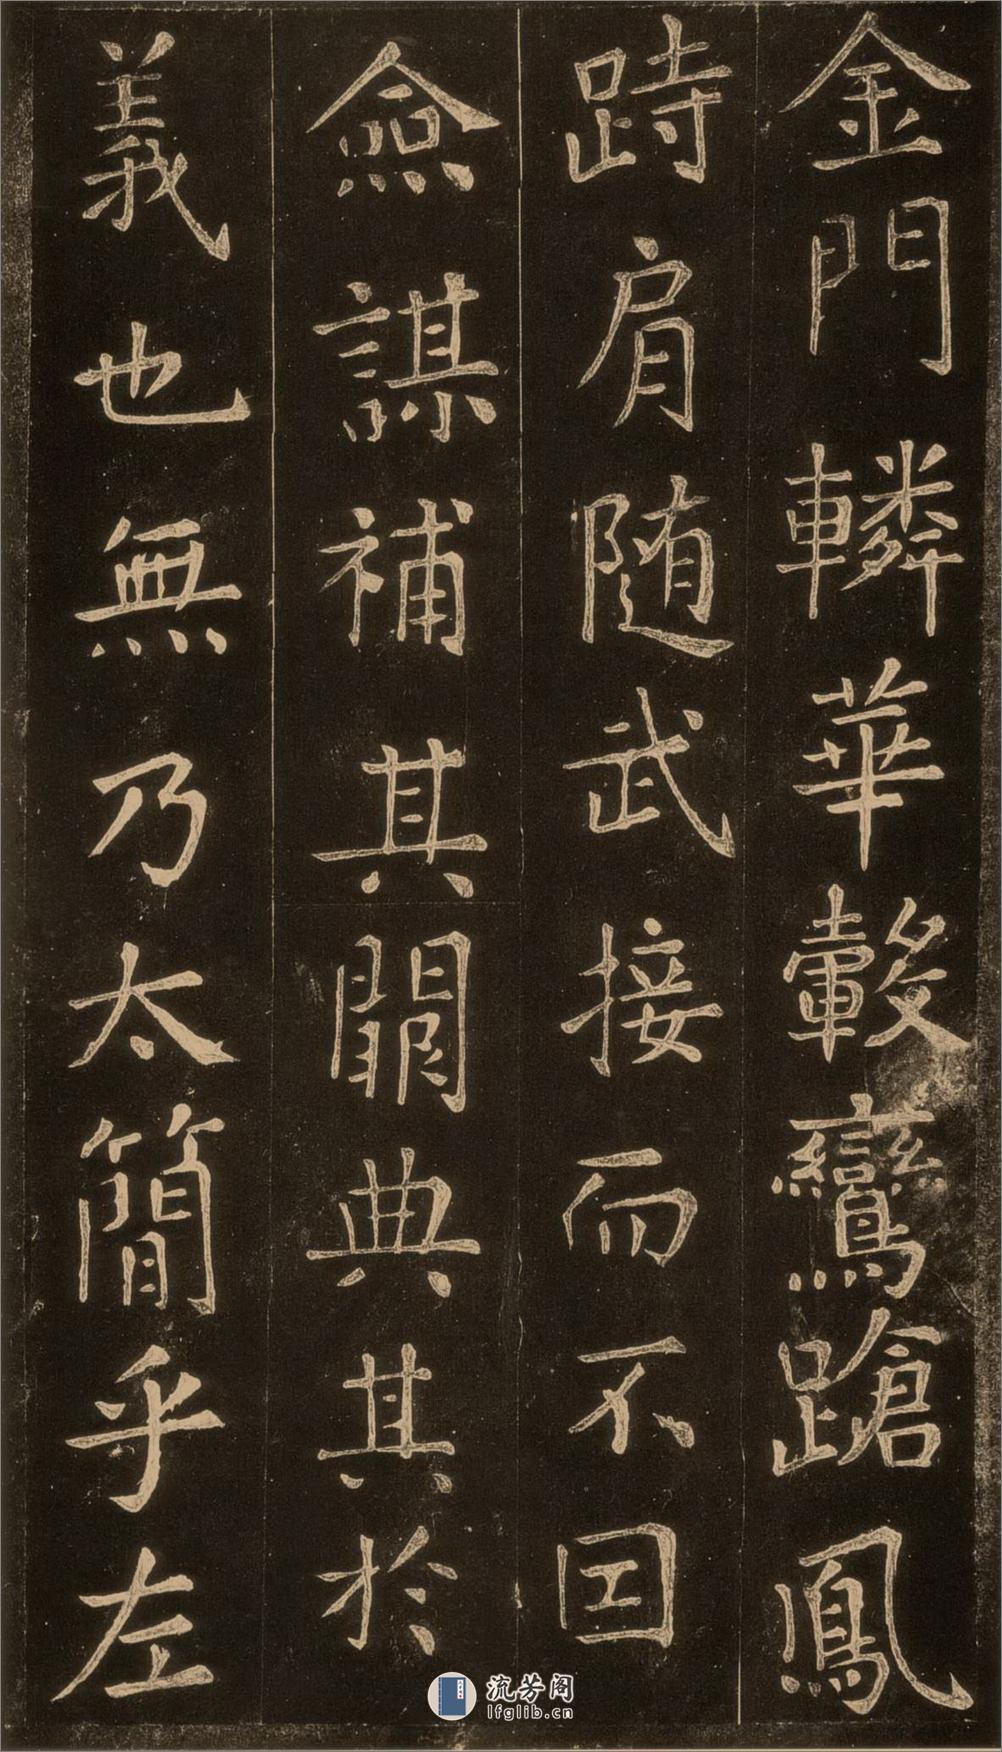 金門轔華轂鸞蹌鳳
跱肩随武接而不因
僉謀補其闕典其於
義也無乃太簡乎左
流芳阁
lfglib.cn